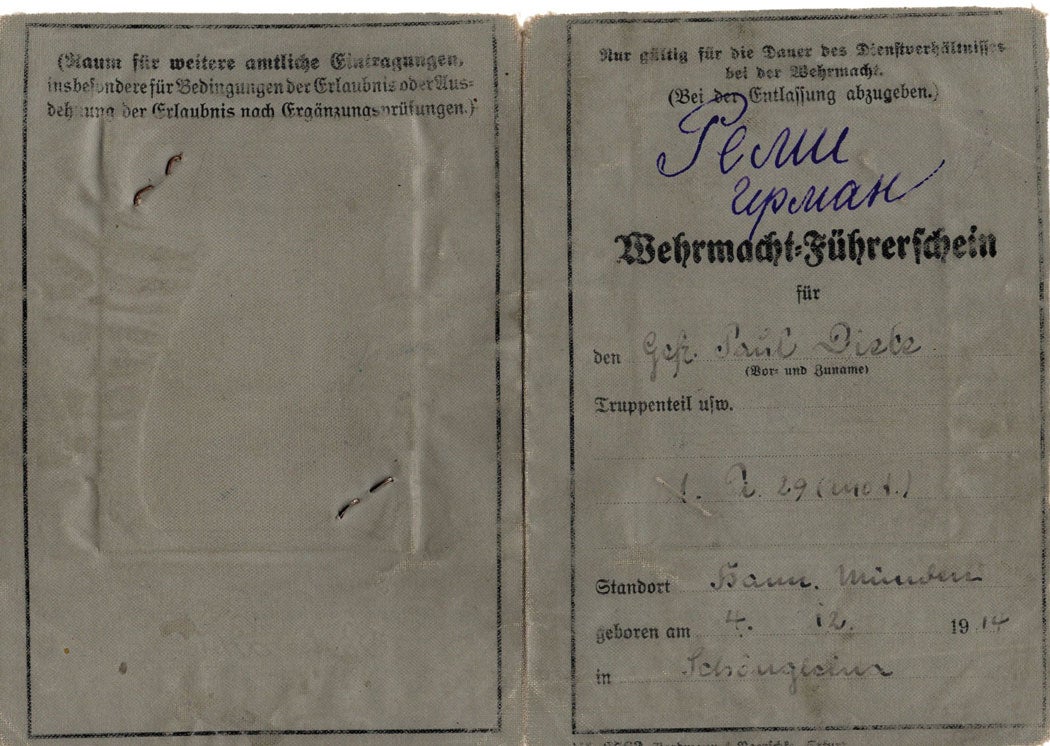 (Raum für weitere amtliche Eintragungen,
insbesondere für Bedingungen der Erlaubnis oder Aus-
dehnung der Erlaubnis nach Ergänzungsprüfungen.)
Nur gültig für die Dauer des Dienstverhältnisses
bei der Wehrmacht.
(Bei der Entlassung abzugeben.)
герман
Wehrmacht-Führerschein
für
den Gefr. Paul
(Vor- und Zuname)
Truppenteil usw.
29 (mot.)
Standort Hann. Münden
geboren am 4. 12. 1914
in